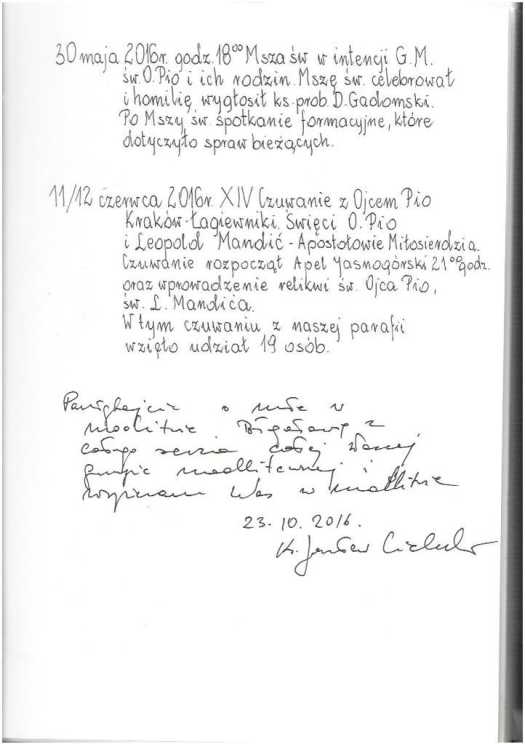 30 maja 2016r. godz. 18⁰⁰ Msza św w intencji G.M.
św. O. Pio i ich rodzin. Mszę św. celebrował
i homilię wygłosił ks. prob. D. Gadomski.
Po Mszy św. spotkanie formacyjne, które
dotyczyło spraw bieżących.
11/12 czerwca 2016r. XIV Czuwanie z Ojcem Pio
Kraków-Łagiewniki. Święci O. Pio
i Leopold Mandić - Apostołowie Miłosierdzia.
Czuwanie rozpoczął Apel Jasnogórski 21⁰⁰ godz.
oraz wprowadzenie relikwi św. Ojca Pio,
św. L. Mandića.
W tym czuwaniu z naszej parafii
wzięło udział 19 osób.
Pamiętajcie o mnie w
modlitwie Błogosławię z
całego serca całej Waszej
grupie modlitewnej i
wspieram Was w modlitwie
23.10.2016.
Ks.